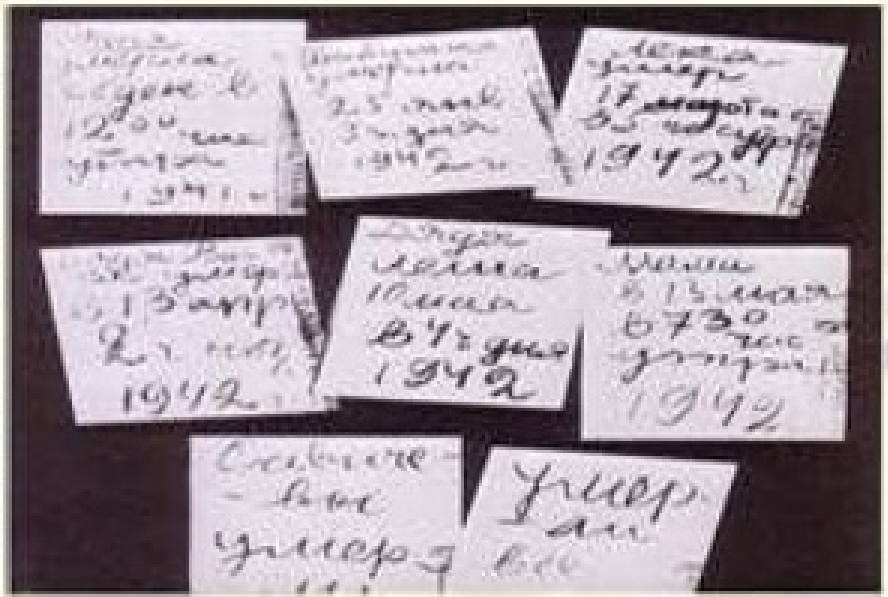 Женя
умерла
28 дек в
12 00 час
утра
1941 г
Бабушка
умерла
25 янв
3 ч дня
1942 г
Лека
умер
17 марта
в 5 час утра
1942 г
Дядя Вася
умер
в 13 апр
2 ч ночь
1942
Дядя
Леша
10 мая
в 4 ч дня
1942
Мама
в 13 мая
в 730
час
утра
1942
Савиче-
-вы
умер
Умер
ли
все